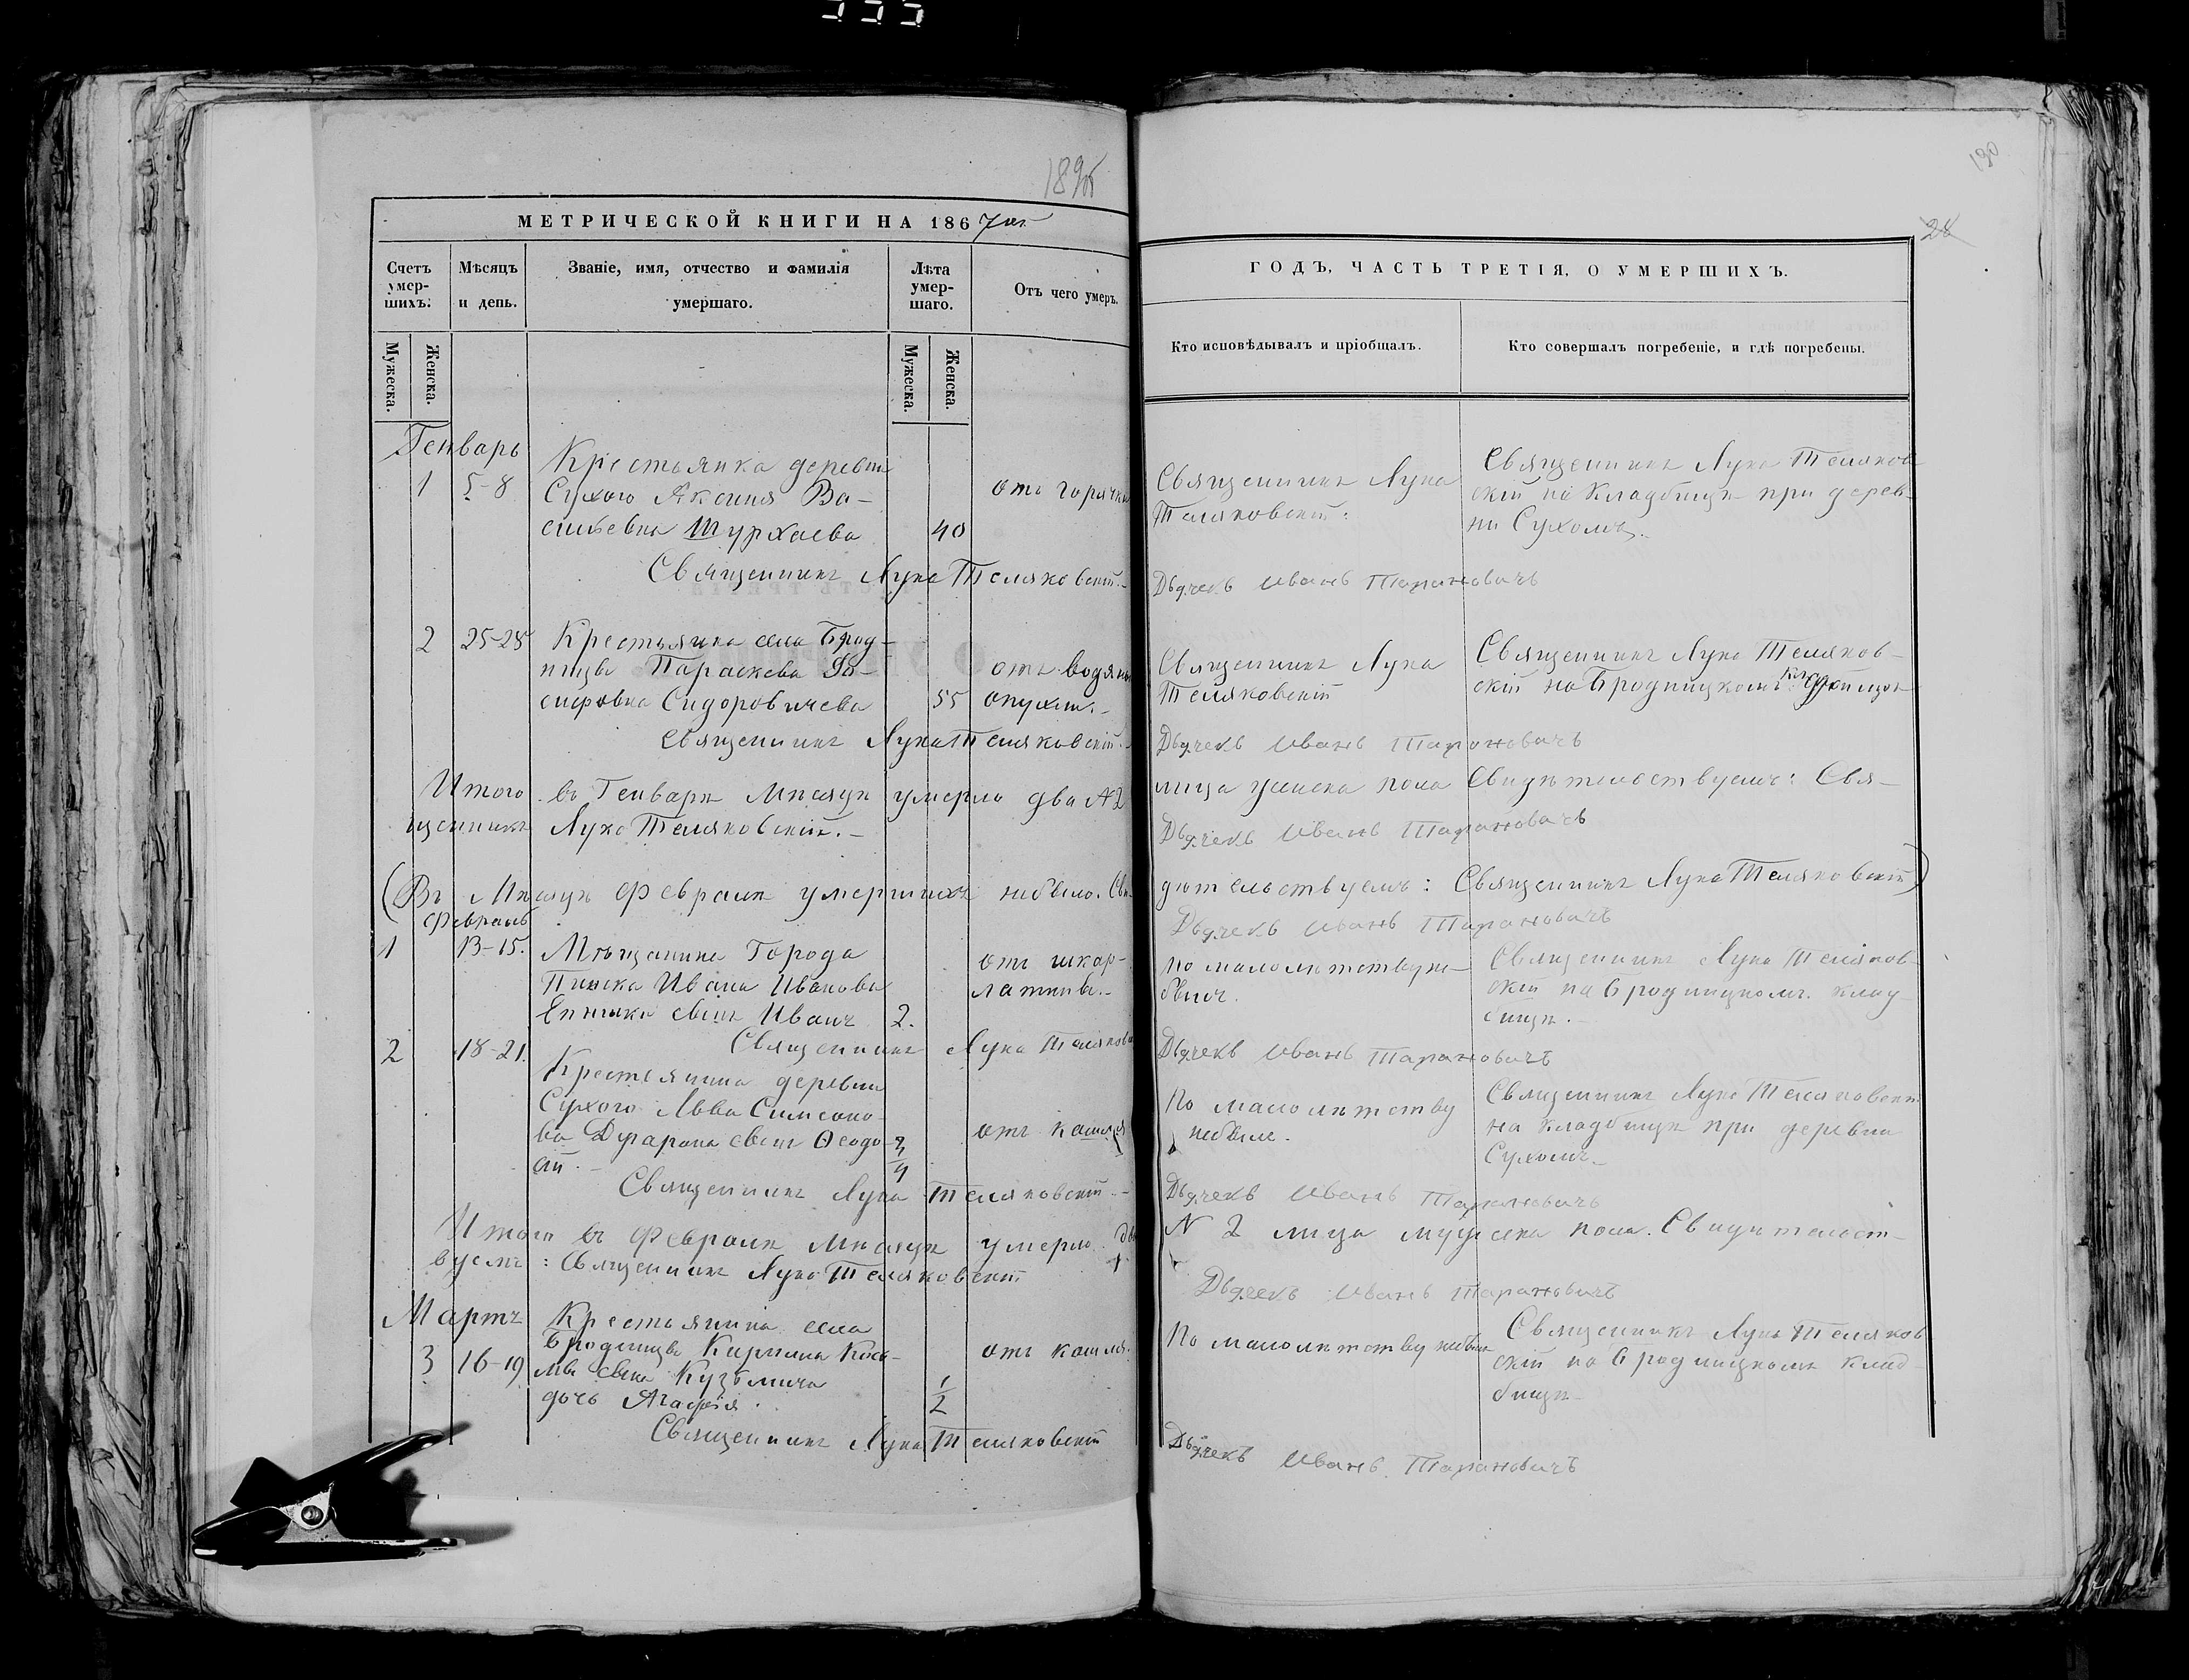 МЕТРИЧЕСКОЙ КНИГИ НА 1867
Счетъ умер-шихъ.
Мѣсяцъ и день.
Званіе, имя, отчество и фамилія умершаго.
Лѣта умер-шаго.
Отъ чего умеръ.
Мужеска.
Женска.
Мужеска.
Женска.
Генварь
1 5-8
Крестьянка деревни
Сухого Аксинія Ва-
сильевна Шурхаева 40
отъ горячки
Священникъ Лука Теляковскій.
2 25-28
Крестьянка села Брод-
ницы Параскева Іо-
сифовна Сидоровичева 55
отъ водяной
опухли.
Священникъ Лука Теляковскій.
Итого въ Генварѣ Мѣсяцѣ умерло два № 2
щенникъ Лука Теляковскій.
(Въ Мѣсяцѣ Февралѣ умершихъ небыло. Сви-
Февраль
1 13-15.
Мѣщанина Города
Пинска Ивана Иванова
сынъ Иванъ 2.
отъ шкар-
латины.
Священникъ Лука Теляковс
2 18-21.
Крестьянина деревни
Сухого Льва Симеоно-
ва сынъ Ѳеодо-
сій. 3/4
отъ кашля
Священникъ Лука Теляковскій.
Итого въ Февралѣ Мѣсяцѣ умерло два
вуемъ: Священникъ Лука Теляковскій
Мартъ
3 16-19
Крестьянина села
Бродницы Кирилла Кось-
мы сына Кузьмича
дочь Агафія. 1/2
отъ кашля.
Священникъ Лука Теляковскій
28
190
ГОДЪ, ЧАСТЬ ТРЕТІЯ, О УМЕРШИХЪ.
Кто исповѣдывалъ и пріобщалъ.
Кто совершалъ погребеніе, и гдѣ погребены.
Священникъ Лука
Теляковскій.
Священникъ Лука Теляков-
скій на Кладбищѣ при дерев-
ни Сухомъ.
Дьячекъ Иванъ Тарановичъ
Священникъ Лука
Теляковскій
Священникъ Лука Теляков-
скій на Бродницкомъ кладбищѣ
Дьячекъ Иванъ Тарановичъ
лица женска пола Свидѣтельствуемъ: Свя-
Дьячекъ Иванъ Тарановичъ
дѣтельствуемъ: Священникъ Лука Теляковскій)
Дьячекъ Иванъ Тарановичъ
По малолѣтству не-
былъ.
Священникъ Лука Теляков-
скій на Бродницкомъ клад-
бищѣ.
Дьячекъ Иванъ Тарановичъ
По малолѣтству
небылъ.
Священникъ Лука Теляковскій
на кладбищѣ при деревни
Сухомъ.
Дьячекъ Иванъ Тарановичъ
№ 2 лица мужеска пола. Свидѣтельст-
Дьячекъ Иванъ Тарановичъ
По малолѣтству небыла
Священникъ Лука Теляков
скій на Бродницкомъ клад-
бищѣ
Дьячекъ Иванъ Тарановичъ